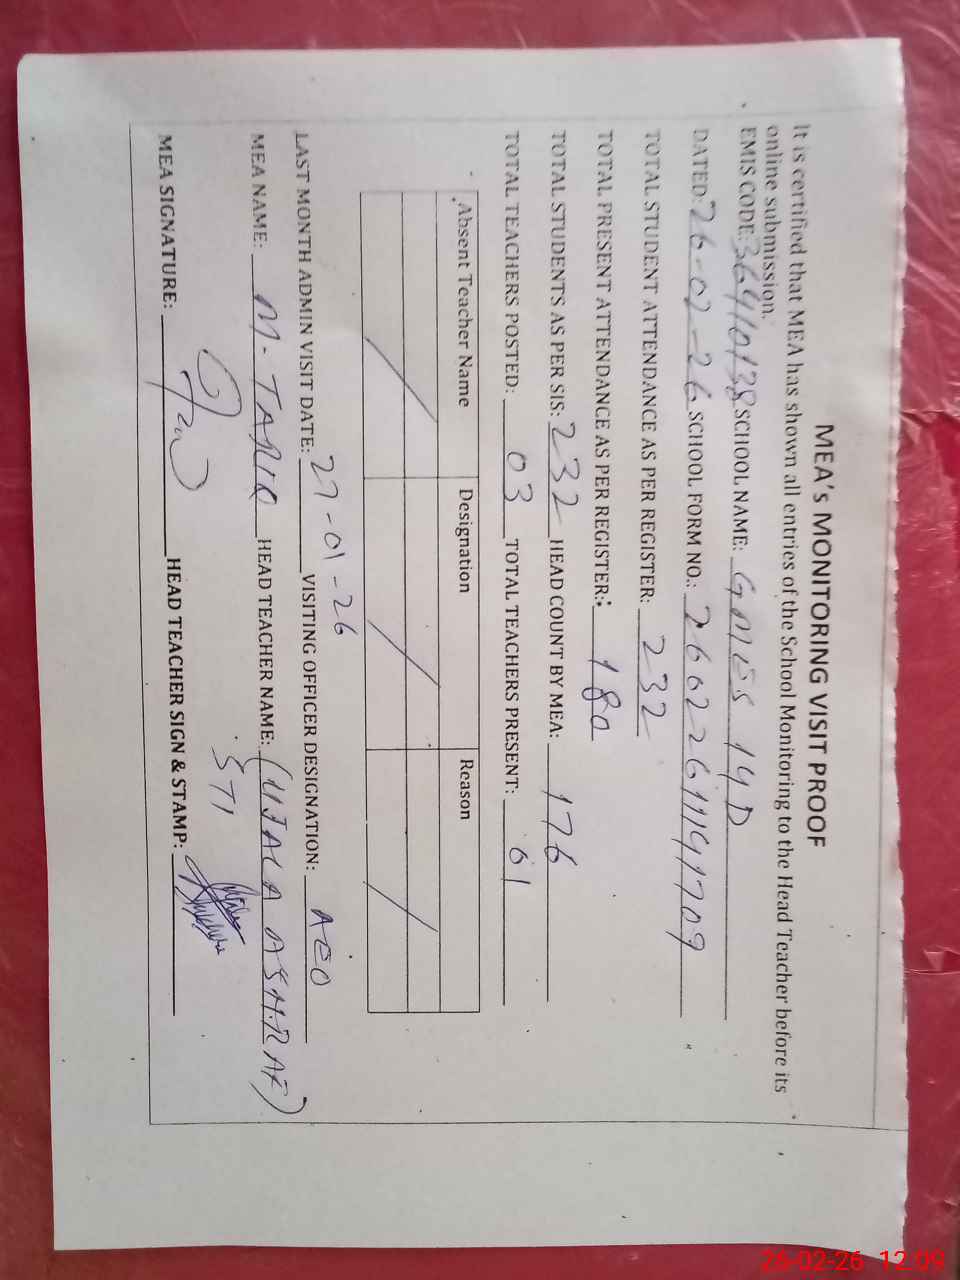 MEA's MONITORING VISIT PROOF
It is certified that MEA has shown all entries of the School Monitoring to the Head Teacher before its
online submission.
EMIS CODE: 36410138 SCHOOL NAME: GMES 14D
DATED: 26-02-26 SCHOOL FORM NO.: 26622611191709
TOTAL STUDENT ATTENDANCE AS PER REGISTER: 232
TOTAL PRESENT ATTENDANCE AS PER REGISTER: 180
TOTAL STUDENTS AS PER SIS: 232 HEAD COUNT BY MEA: 176
TOTAL TEACHERS POSTED: 03 TOTAL TEACHERS PRESENT: 61
Absent Teacher Name Designation Reason
LAST MONTH ADMIN VISIT DATE: 27-01-26 VISITING OFFICER DESIGNATION: AEO
MEA NAME: M-TARIQ HEAD TEACHER NAME: (UJALA ASHRAF)
STI
MEA SIGNATURE: HEAD TEACHER SIGN & STAMP:
26-02-26 12:09